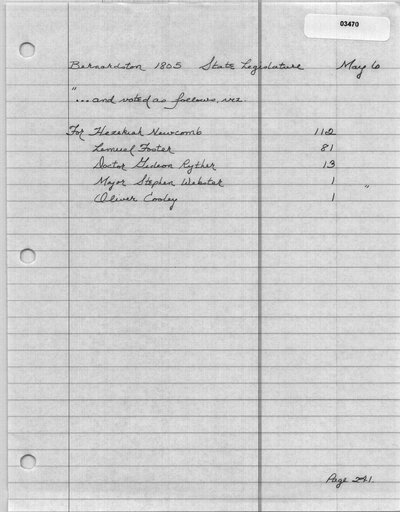 03470
Bernardston 1805 State Legislature May 6
"
...and voted as follows, viz.
For Hezekiah Newcomb 112
Lemuel Foster 81
Doctor Gideon Ryther 13
Major Stephen Webster 1 "
Oliver Cooley 1
Page 241.